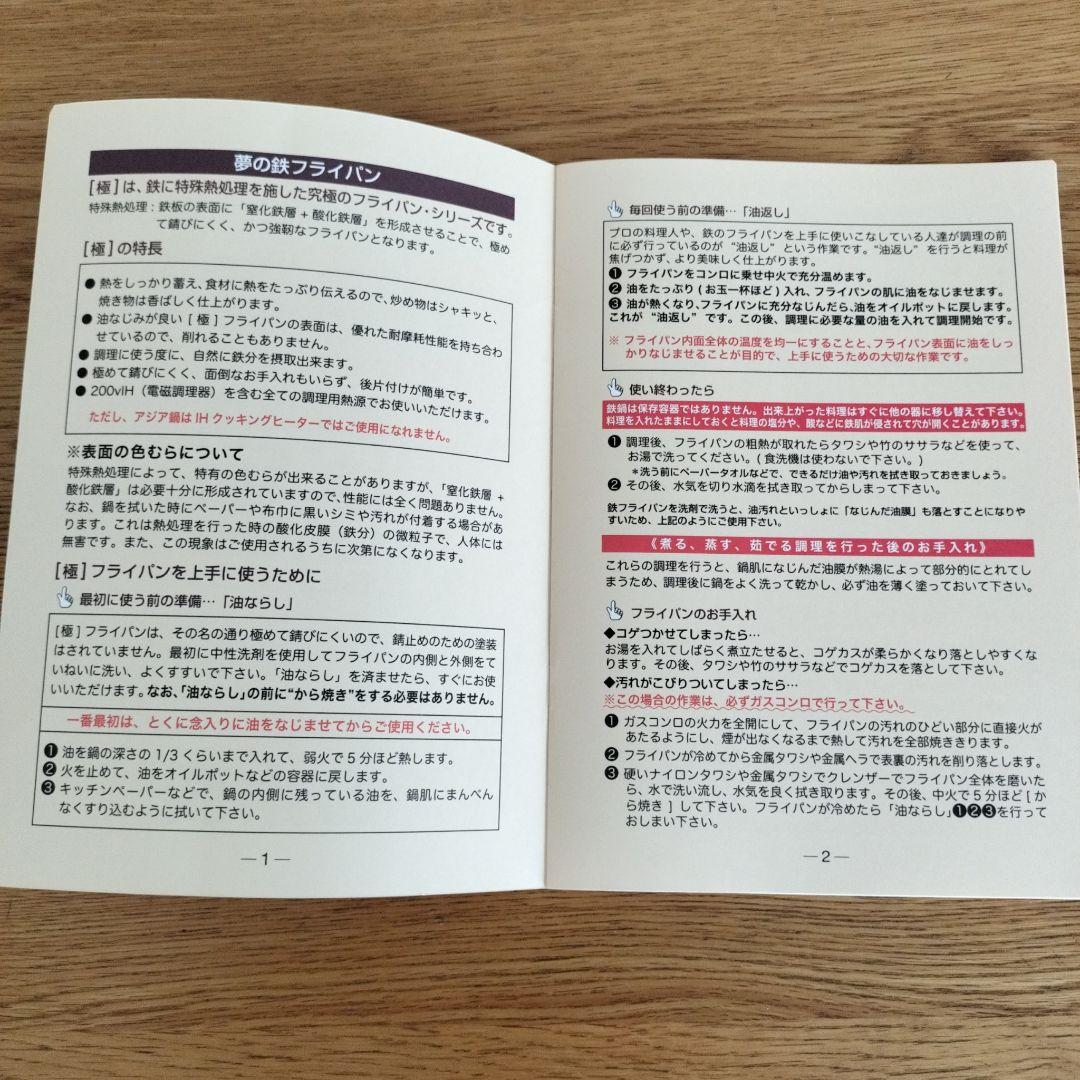 夢の鉄フライパン
[極]は、鉄に特殊熱処理を施した究極のフライパン・シリーズです。
特殊熱処理：鉄板の表面に「窒化鉄層+酸化鉄層」を形成させることで、極め
て錆びにくく、かつ強靭なフライパンとなります。
[極]の特長
●熱をしっかり蓄え、食材に熱をたっぷり伝えるので、炒め物はシャキッと、
焼き物は香ばしく仕上がります。
●油なじみが良い[極]フライパンの表面は、優れた耐摩耗性能を持ち合わ
せているので、削れることもありません。
●調理に使う度に、自然に鉄分を摂取出来ます。
●極めて錆びにくく、面倒なお手入れもいらず、後片付けが簡単です。
●200vIH（電磁調理器）を含む全ての調理用熱源でお使いいただけます。
ただし、アジア鍋はIHクッキングヒーターではご使用になれません。
※表面の色むらについて
特殊熱処理によって、特有の色むらが出来ることがありますが、「窒化鉄層+
酸化鉄層」は必要十分に形成されていますので、性能には全く問題ありません。
なお、鍋を拭いた時にペーパーや布巾に黒いシミや汚れが付着する場合があ
ります。これは熱処理を行った時の酸化皮膜（鉄分）の微粒子で、人体には
無害です。また、この現象はご使用されるうちに次第になくなります。
[極]フライパンを上手に使うために
最初に使う前の準備…「油ならし」
[極]フライパンは、その名の通り極めて錆びにくいので、錆止めのための塗装
はされていません。最初に中性洗剤を使用してフライパンの内側と外側をて
いねいに洗い、よくすすいで下さい。「油ならし」を済ませたら、すぐにお使
いいただけます。なお、「油ならし」の前に“から焼き”をする必要はありません。
一番最初は、とくに念入りに油をなじませてからご使用ください。
❶油を鍋の深さの1/3くらいまで入れて、弱火で5分ほど熱します。
❷火を止めて、油をオイルポットなどの容器に戻します。
❸キッチンペーパーなどで、鍋の内側に残っている油を、鍋肌にまんべん
なくすり込むように拭いて下さい。
—1—
毎回使う前の準備…「油返し」
プロの料理人や、鉄のフライパンを上手に使いこなしている人達が調理の前
に必ず行っているのが“油返し”という作業です。“油返し”を行うと料理が
焦げつかず、より美味しく仕上がります。
❶フライパンをコンロに乗せ中火で充分温めます。
❷油をたっぷり(お玉一杯ほど)入れ、フライパンの肌に油をなじませます。
❸油が熱くなり、フライパンに充分なじんだら、油をオイルポットに戻します。
これが“油返し”です。この後、調理に必要な量の油を入れて調理開始です。
※フライパン内面全体の温度を均一にすることと、フライパン表面に油をしっ
かりなじませることが目的で、上手に使うための大切な作業です。
使い終わったら
鉄鍋は保存容器ではありません。出来上がった料理はすぐに他の器に移し替えて下さい。
料理を入れたままにしておくと料理の塩分や、酸などに鉄肌が侵されて穴が開くことがあります。
❶調理後、フライパンの粗熱が取れたらタワシや竹のササラなどを使って、
お湯で洗ってください。(食洗機は使わないで下さい。)
＊洗う前にペーパータオルなどで、できるだけ油や汚れを拭き取っておきましょう。
❷その後、水気を切り水滴を拭き取ってからしまって下さい。
鉄フライパンを洗剤で洗うと、油汚れといっしょに「なじんだ油膜」も落とすことになりや
すいため、上記のようにご使用下さい。
《煮る、蒸す、茹でる調理を行った後のお手入れ》
これらの調理を行うと、鍋肌になじんだ油膜が熱湯によって部分的にとれてし
まうため、調理後に鍋をよく洗って乾かし、必ず油を薄く塗っておいて下さい。
フライパンのお手入れ
◆コゲつかせてしまったら…
お湯を入れてしばらく煮立たせると、コゲカスが柔らかくなり落としやすくな
ります。その後、タワシや竹のササラなどでコゲカスを落として下さい。
◆汚れがこびりついてしまったら…
※この場合の作業は、必ずガスコンロで行って下さい。
❶ガスコンロの火力を全開にして、フライパンの汚れのひどい部分に直接火が
あたるようにし、煙が出なくなるまで熱して汚れを全部焼ききります。
❷フライパンが冷めてから金属タワシや金属ヘラで表裏の汚れを削り落とします。
❸硬いナイロンタワシや金属タワシでクレンザーでフライパン全体を磨いた
ら、水で洗い流し、水気を良く拭き取ります。その後、中火で5分ほど[から
焼き]して下さい。フライパンが冷めたら「油ならし」❶❷❸を行って
おしまい下さい。
—2—